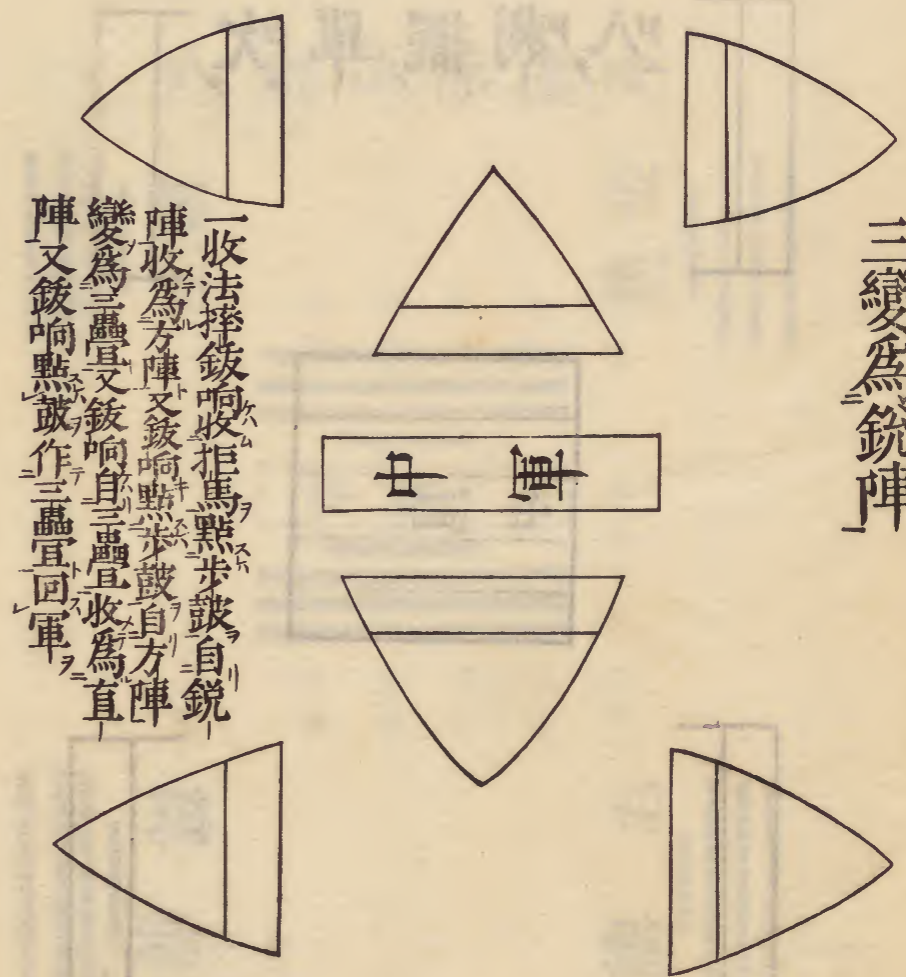 三變爲銳陣
中軍
一收法摔鈸响收拒馬點步皷自銳
陣收爲方陣又鈸响點步皷自方陣
變爲三疊又鈸响自三疊收爲直
陣又鈸响點皷作三疊回軍